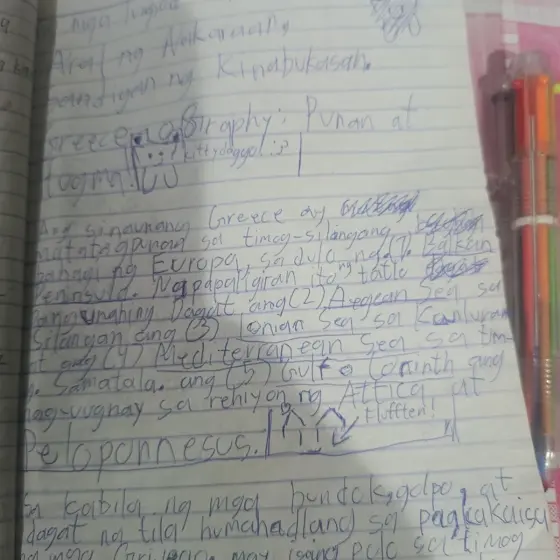 mga
Aral ng Nakaraan,
ng Kinabukasan.
Greece ography: Punan at
kittydoggo! :3
Ang sinaunang Greece ay
matatagpuan sa timog-silangang
bahagi ng Europa, sa dulo ng (1) Balkan
Peninsula. Napapaligiran ito ng tatlo
pangunahing dagat ang (2) Aegean Sea sa
silangan ang (3) Ionian Sea sa Kanluran
at ang (4) Mediterranean Sea sa tim-
Samatala. ang (5) Gulf o Corinth ang
nag-uugnay sa rehiyon ng Attica, at
Peloponnesus.
Flufften!
kabila ng mga bundok, golpo, at
dagat ng tila humahadlang sa pagkakaisa
ng mga may isang sa timog